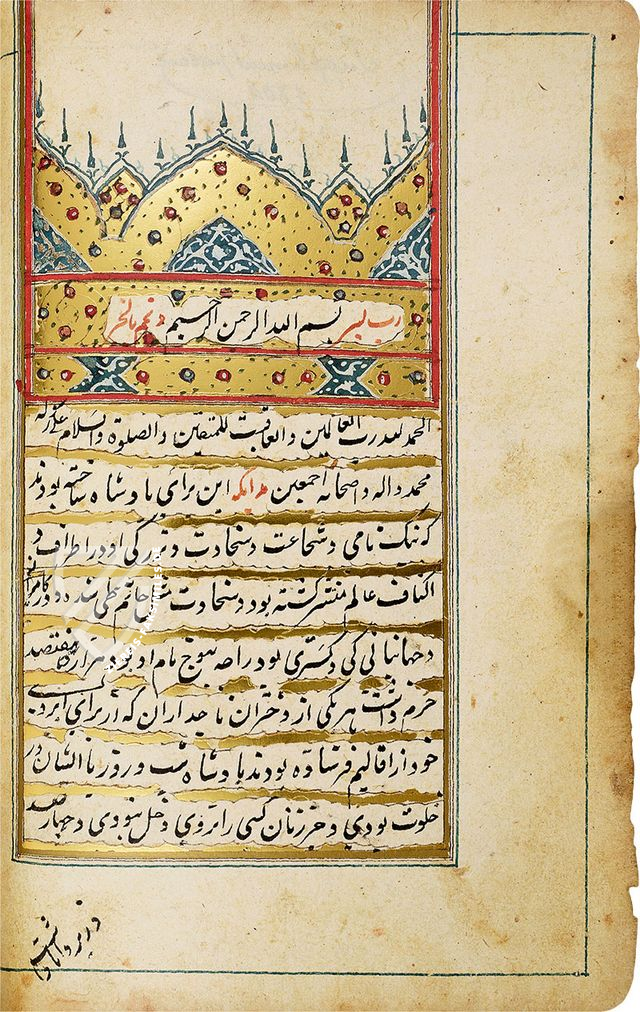 رب یسر بسم الله الرحمن الرحیم و تمم بالخیر
الحمد لله رب العالمین و العاقبت للمتقین و الصلوة و السلام علی رسوله
محمد و اله و اصحابه اجمعین بدانکه این رای پادشاه ساخته بودند
که نیک نامی و شجاعت و سخاوت و بزرکی او در اطراف و
اکناف عالم منتشر کشته بود و سخاوت حاتم طی شده و در کامرانی
و جهانبانی کی و کسری بود راجه بهوج نام او بود هزار و هفتصد
حرم داشت هر یکی از دختران تاجداران که از برای ابروی
خود از اقالیم فرستاده بودند پادشاه شب و روز با ایشان در
خلوت بودی و جز زنان کسی را بروی دخل نبودی و چهار صد